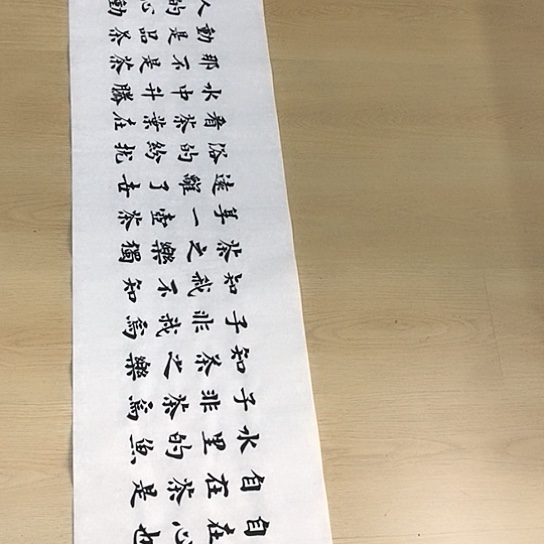 自在心也
自在茶是
水里的魚
子非茶焉
知茶之樂
子非我焉
知我不知
茶之樂獨
尋一壺茶
遠離了世
俗的紛擾
看茶葉在
水中升騰
那不是茶
動是品茶
人的心動